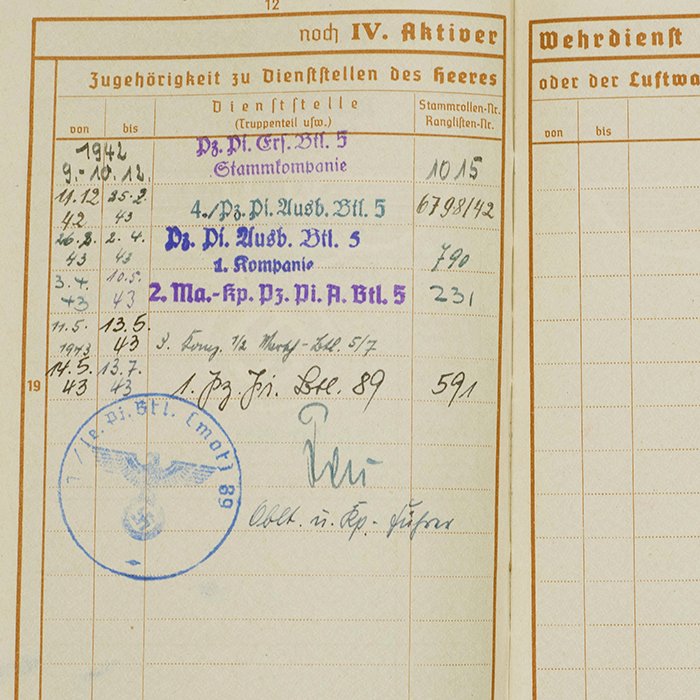 12
noch IV. Aktiver
Wehrdienst
Zugehörigkeit zu Dienststellen des Heeres
oder der Luftwa
von
bis
Dienststelle
(Truppenteil usw.)
Stammrollen-Nr.
Ranglisten-Nr.
von
bis
1942
9.-10.12.
Pz. Pi. Ers. Btl. 5
Stammkompanie
1015
11.12 25.2.
42 43
4./Pz. Pi. Ausb. Btl. 5
6798/42
26.2. 2.4.
43 43
Pz. Pi. Ausb. Btl. 5
1. Kompanie
790
3.4. 10.5.
43 43
2. Ma.-Kp. Pz. Pi. A. Btl. 5
231
11.5. 13.5.
1943 43
Marsch-Btl. 5/7
14.5. 13.7.
19 43 43
1. Pz. Pi. Btl. 89
591
1./le. Pi. Btl. (mot) 89
Oblt. u. Kp.-Führer